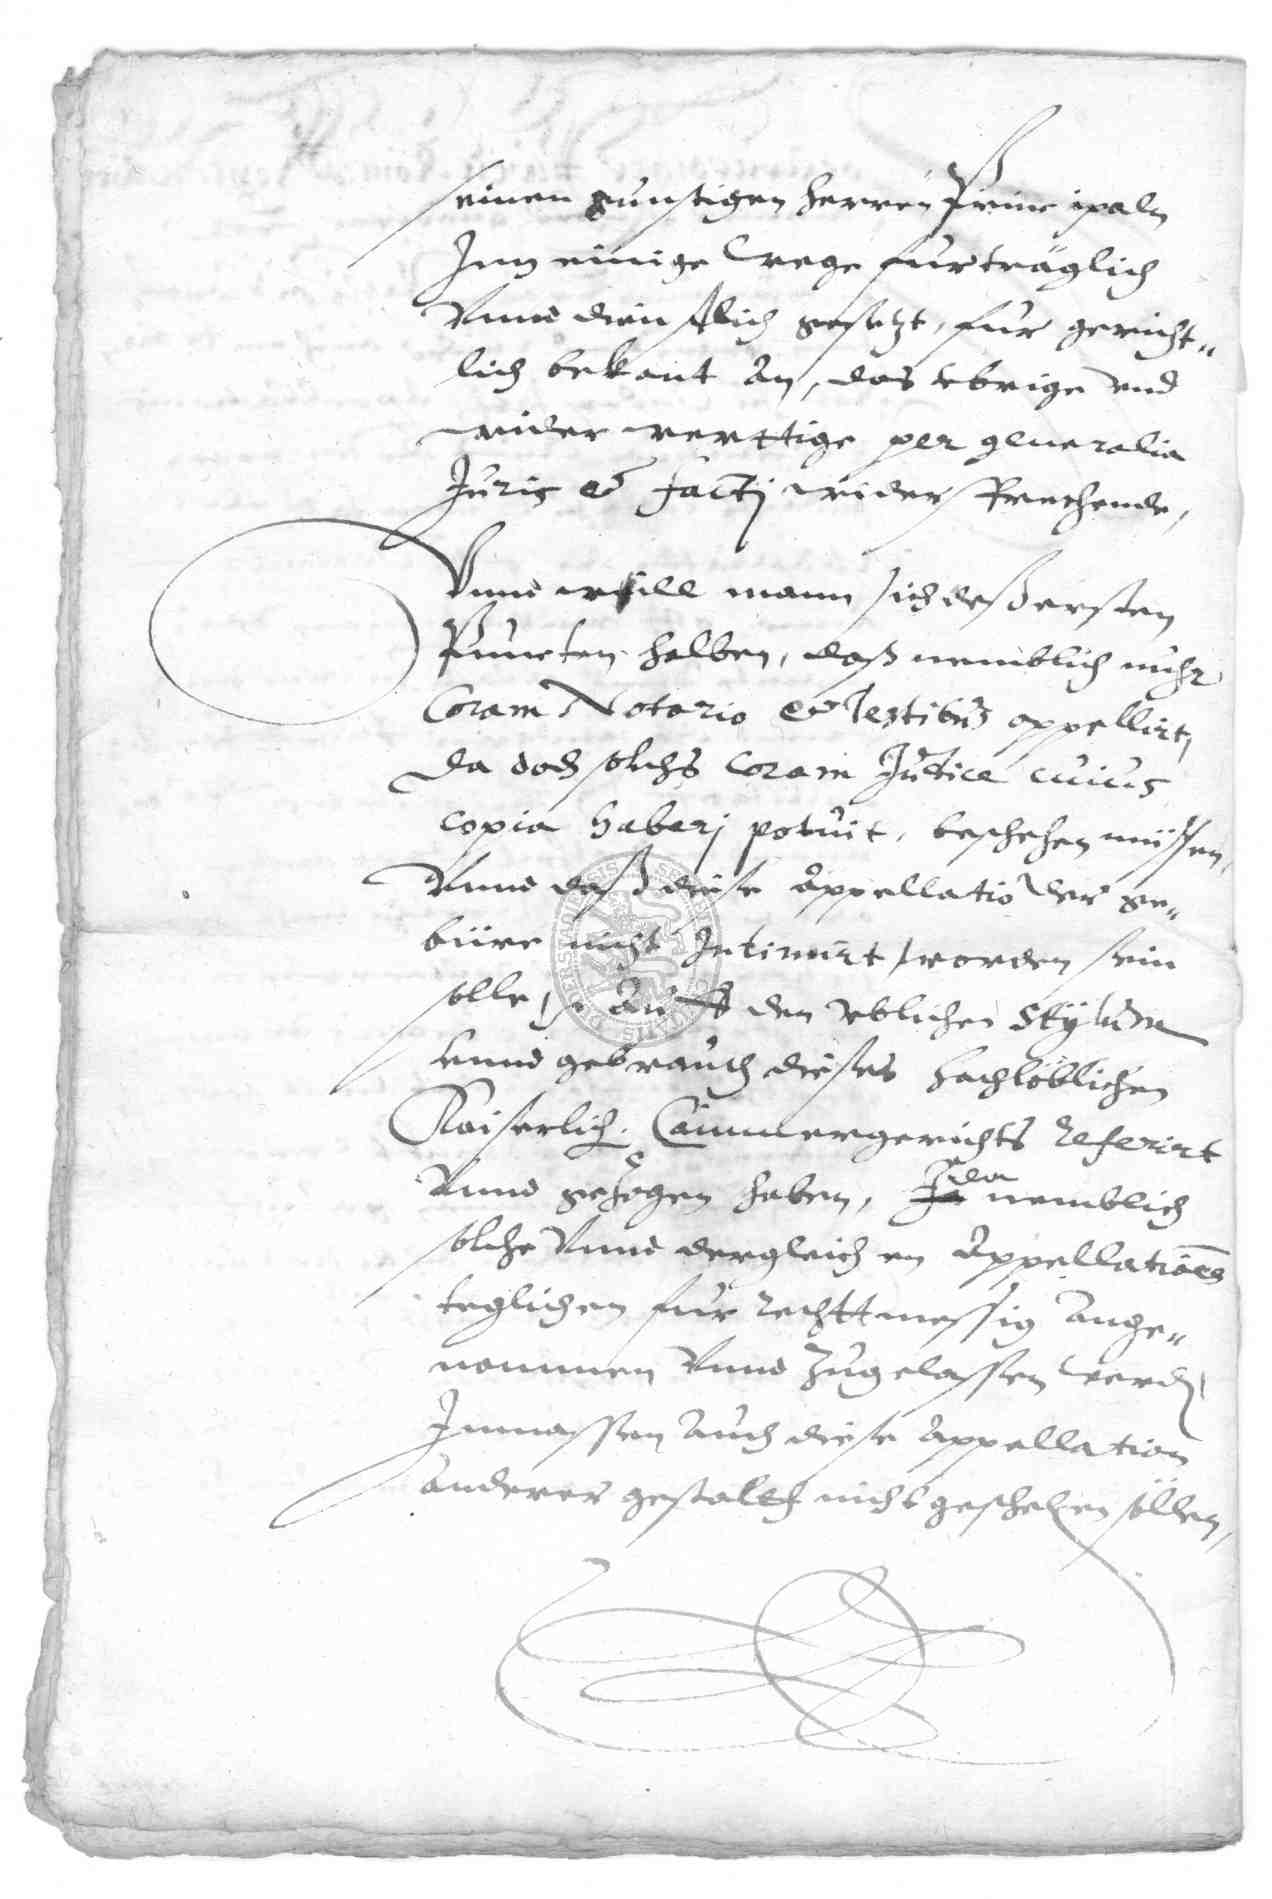 seinen gunstigen herren Principaln
Inn einige Wege furträglich
Vnnd dienstlich gesetzt, fur gericht„
lich bekant An, das vbrige vnd
wider werttige per generalia
Juris et facti widersprechende,
Vnnd will mann sich deß ersten
Puncten halben, daß nemblich nicht
Coram Notario et testibus appellirt,
da doch solchs Coram Judice cuius
copia haberj potuit, beschehen müssen,
Vnnd daß diese Appellatio der ge„
büre nicht Intimirt worden sein
solle, Auff den vblichen Stylum
Vnnd gebrauch dieses hochlöblichen
Kaiserlich. Cammergerichts referirt
Vnnd gezogen haben, da nemblich
solche Vnnd dergleichen Appellationes
teglichen fur rechttmessig Ange„
nommen Vnnd Zugelassen werden,
Inmassen Auch diese Appellation
anderer gestalt nicht geschehen sollen,